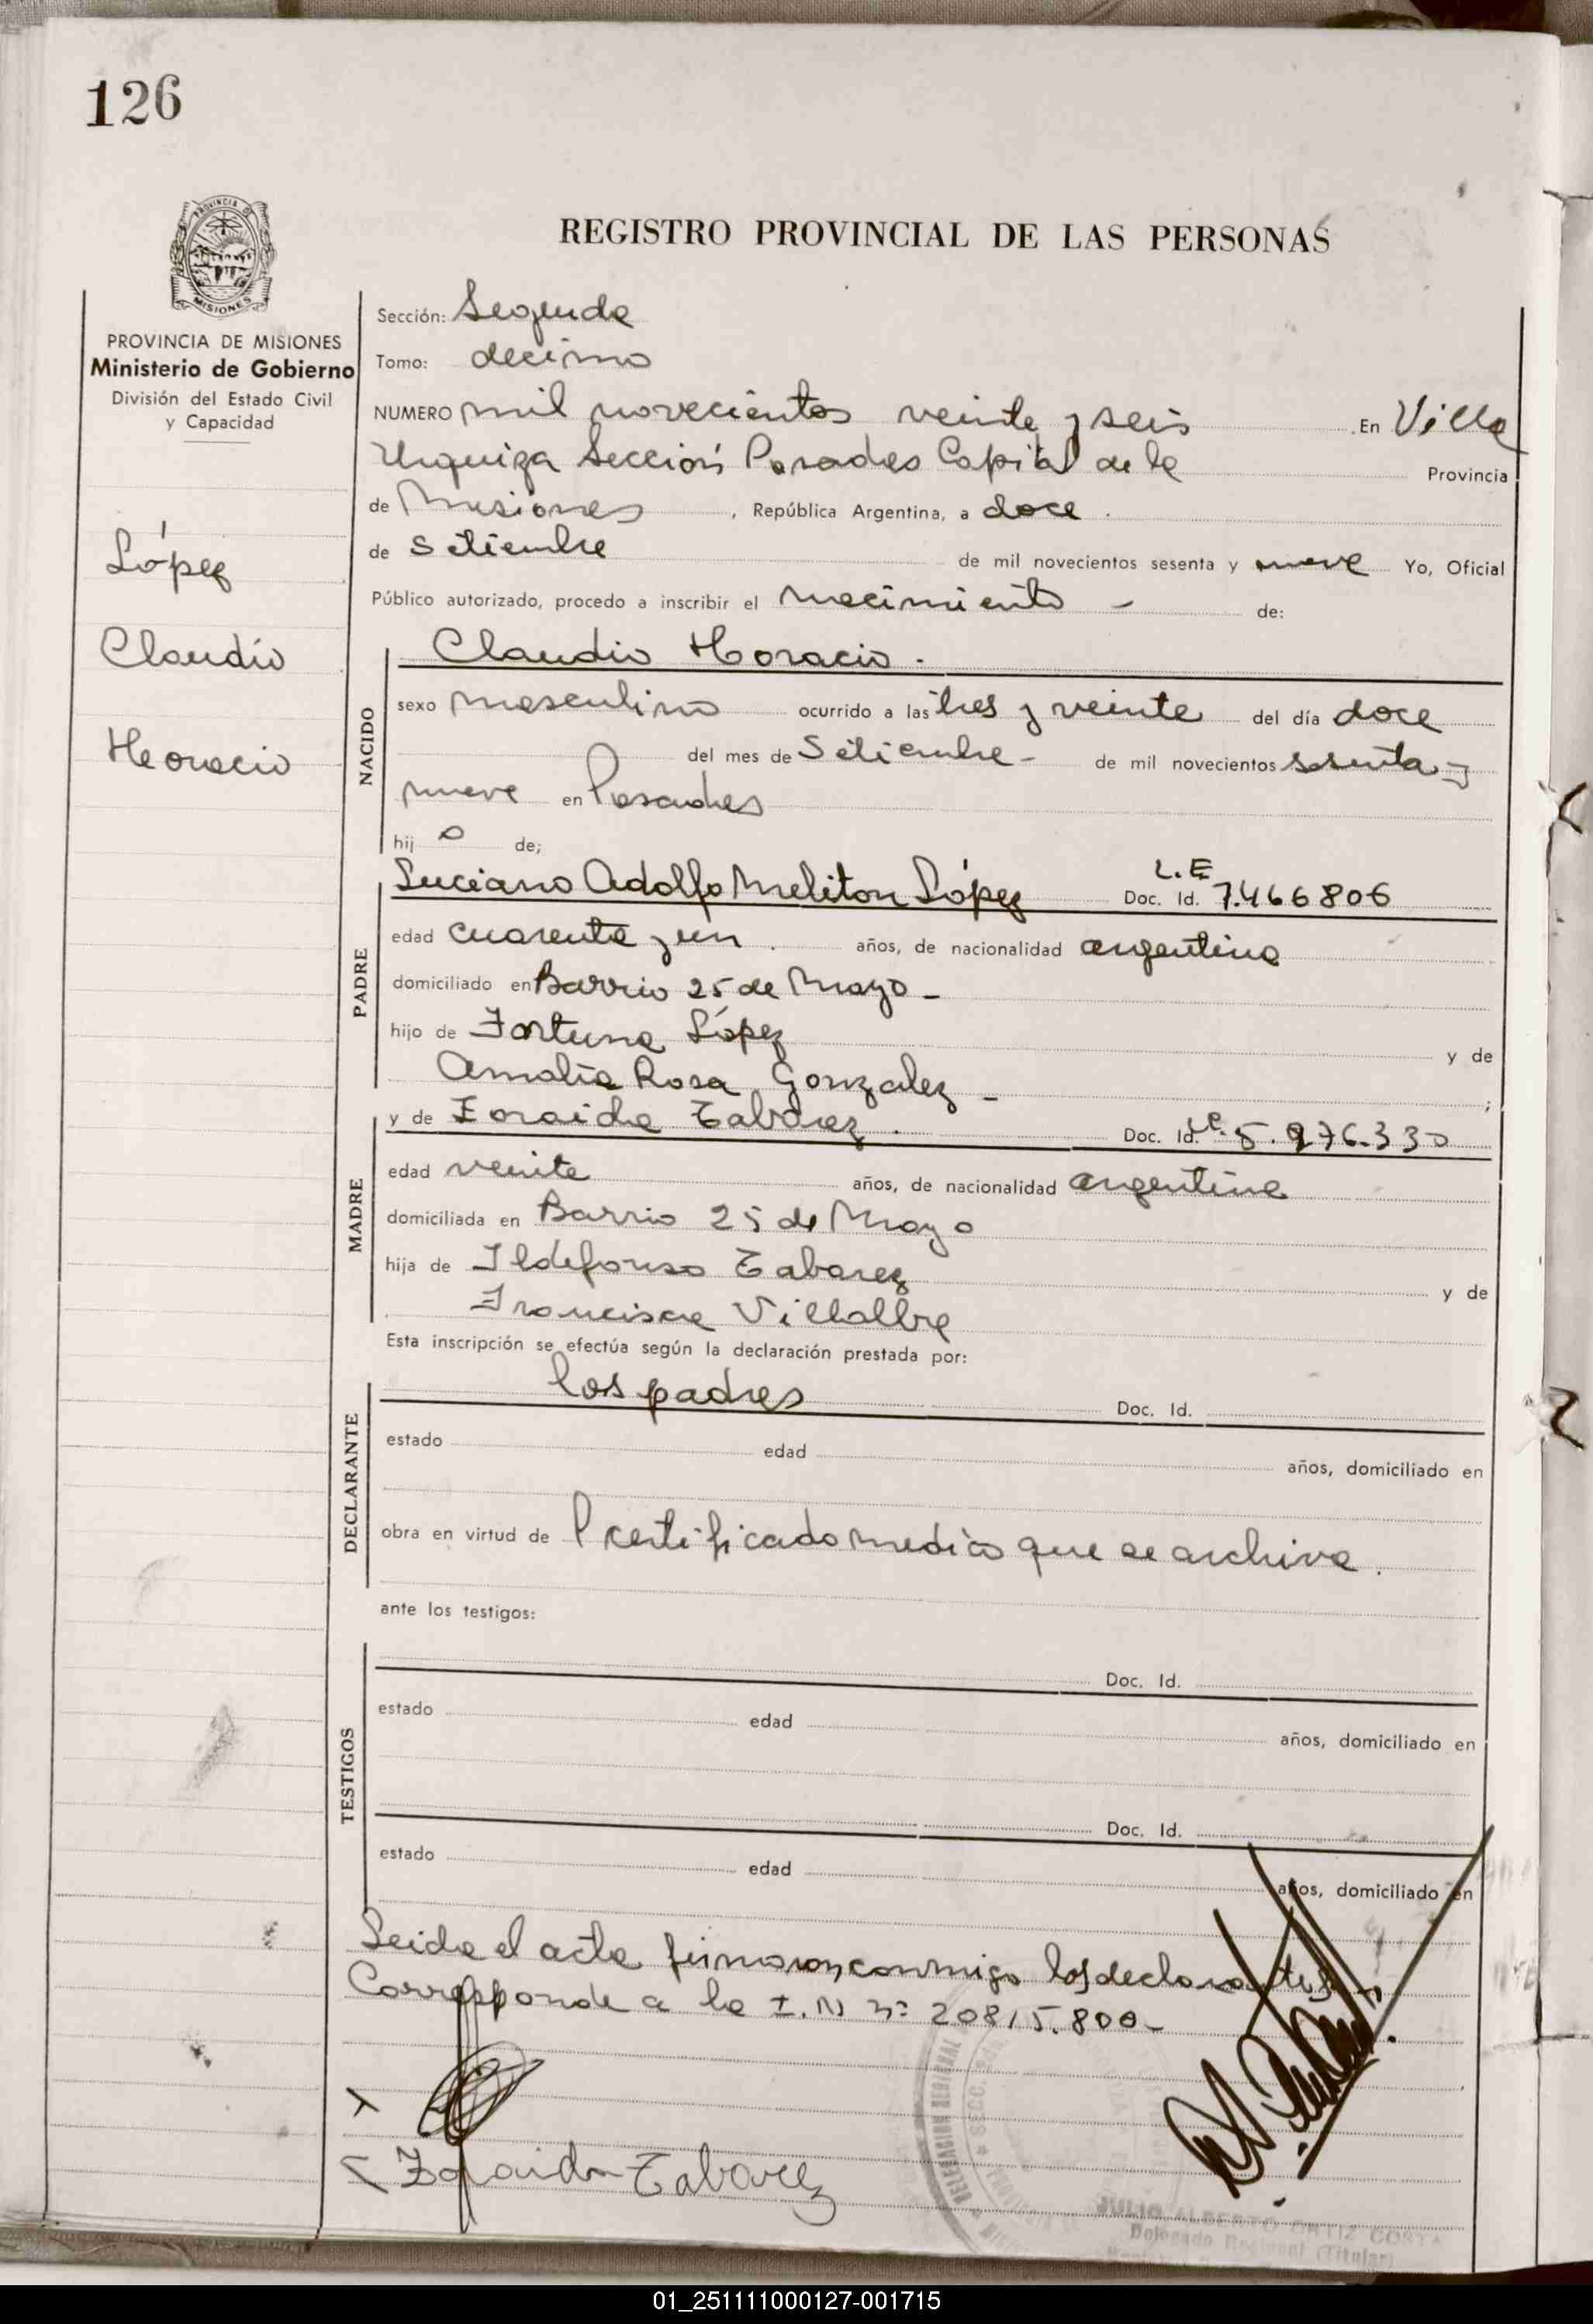 126
REGISTRO PROVINCIAL DE LAS PERSONAS
PROVINCIA DE MISIONES
PROVINCIA DE MISIONES
Ministerio de Gobierno
División del Estado Civil
y Capacidad
López
Claudio
Horacio
Sección: Segunda
Tomo: decimo
NUMERO mil novecientos veinte y seis .En Villa
Urquiza Sección Posadas Capital de la Provincia
de Misiones , República Argentina, a doce .
de Setiembre de mil novecientos sesenta y nueve Yo, Oficial
Público autorizado, procedo a inscribir el nacimiento - de:
NACIDO
Claudio Horacio .
sexo masculino ocurrido a las tres y veinte del día doce
del mes de Setiembre - de mil novecientos sesenta y
nueve en Posadas
hij o de;
PADRE
Luciano Adolfo Meliton López Doc. Id. L.E. 7.466806
edad cuarenta y un . años, de nacionalidad argentina
domiciliado en Barrio 25 de Mayo -
hijo de Fortuna López y de
Amalia Rosa Gonzalez - ;
MADRE
y de Zoraida Tabarez . Doc. Id. 5.976.330
edad veinte años, de nacionalidad argentina
domiciliada en Barrio 25 de Mayo
hija de Ildefonso Tabarez y de
Francisca Villalba
Esta inscripción se efectúa según la declaración prestada por:
DECLARANTE
los padres Doc. Id.
estado edad años, domiciliado en
obra en virtud de certificado medico que se archiva .
ante los testigos:
TESTIGOS
Doc. Id.
estado edad años, domiciliado en
Doc. Id.
estado edad años, domiciliado en
Leida el acta firmaron conmigo los declarantes.
Corresponde a la I.N nº 20815.800-
Zoraida Tabarez
DELEGACION REGIONAL
SECC.
JULIO ALBERTO ORTIZ COSTA
Delegado Regional (Titular)
01_251111000127-001715